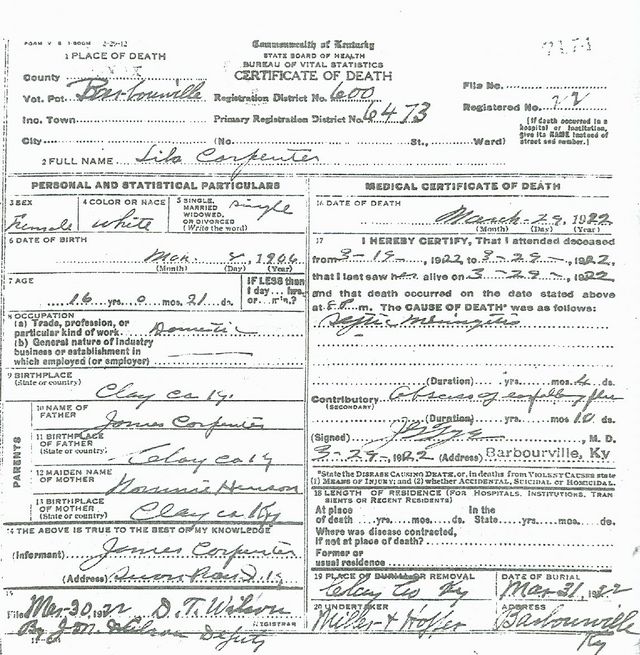 FORM V. S. 1-500M 2-29-12
Commonwealth of Kentucky
STATE BOARD OF HEALTH
BUREAU OF VITAL STATISTICS
CERTIFICATE OF DEATH
1 PLACE OF DEATH
County
Vot. Pct. Barbourville Registration District No. 600
File No.
Inc. Town Primary Registration District No. 6473
Registered No. 22
City (No. St., Ward)
(If death occurred in a
hospital or institution,
give its NAME instead of
street and number.)
2 FULL NAME Lila Carpenter
PERSONAL AND STATISTICAL PARTICULARS
3 SEX
Female
4 COLOR OR RACE
White
5 SINGLE,
MARRIED
WIDOWED,
OR DIVORCED
(Write the word)
Single
6 DATE OF BIRTH
Mar. 8, 1906
(Month) (Day) (Year)
7 AGE
16 yrs. 0 mos. 21 ds.
IF LESS than
1 day... hrs.
or... min.?
8 OCCUPATION
(a) Trade, profession, or
particular kind of work Domestic
(b) General nature of industry
business or establishment in
which employed (or employer)
9 BIRTHPLACE
(State or country)
Clay Co Ky.
PARENTS
10 NAME OF
FATHER
James Carpenter
11 BIRTHPLACE
OF FATHER
(State or country)
Clay Co Ky
12 MAIDEN NAME
OF MOTHER
13 BIRTHPLACE
OF MOTHER
(State or country)
Clay Co Ky
14 THE ABOVE IS TRUE TO THE BEST OF MY KNOWLEDGE
(Informant) James Carpenter
(Address)
15
Filed Mar-30, 1922 D. T. Wilson
REGISTRAR
By J.M. Wilson Deputy
MEDICAL CERTIFICATE OF DEATH
16 DATE OF DEATH
March 29, 1922
(Month) (Day) (Year)
17 I HEREBY CERTIFY, That I attended deceased
from 3-19, 1922 to 3-29-, 1922,
that I last saw her alive on 3-29-, 1922
and that death occurred on the date stated above
at m. The CAUSE OF DEATH* was as follows:
Septic Meningitis
(Duration) yrs. mos. 4 ds.
Contributory Abscess of following flu
(SECONDARY)
(Duration) yrs. mos. 10 ds.
(Signed) , M. D.
3-29-1922 (Address) Barbourville, Ky
*State the DISEASE CAUSING DEATH, or, in deaths from VIOLENT CAUSES state
(1) MEANS OF INJURY; and (2) whether ACCIDENTAL, SUICIDAL or HOMICIDAL.
18 LENGTH OF RESIDENCE (FOR HOSPITALS, INSTITUTIONS, TRAN
SIENTS OR RECENT RESIDENTS)
At place In the
of death yrs. mos. ds. State yrs. mos. ds.
Where was disease contracted,
if not at place of death?
Former or
usual residence
19 PLACE OF BURIAL OR REMOVAL
Clay Co Ky
DATE OF BURIAL
Mar 31, 1922
20 UNDERTAKER
Miller & Hopper
ADDRESS
Barbourville
Ky